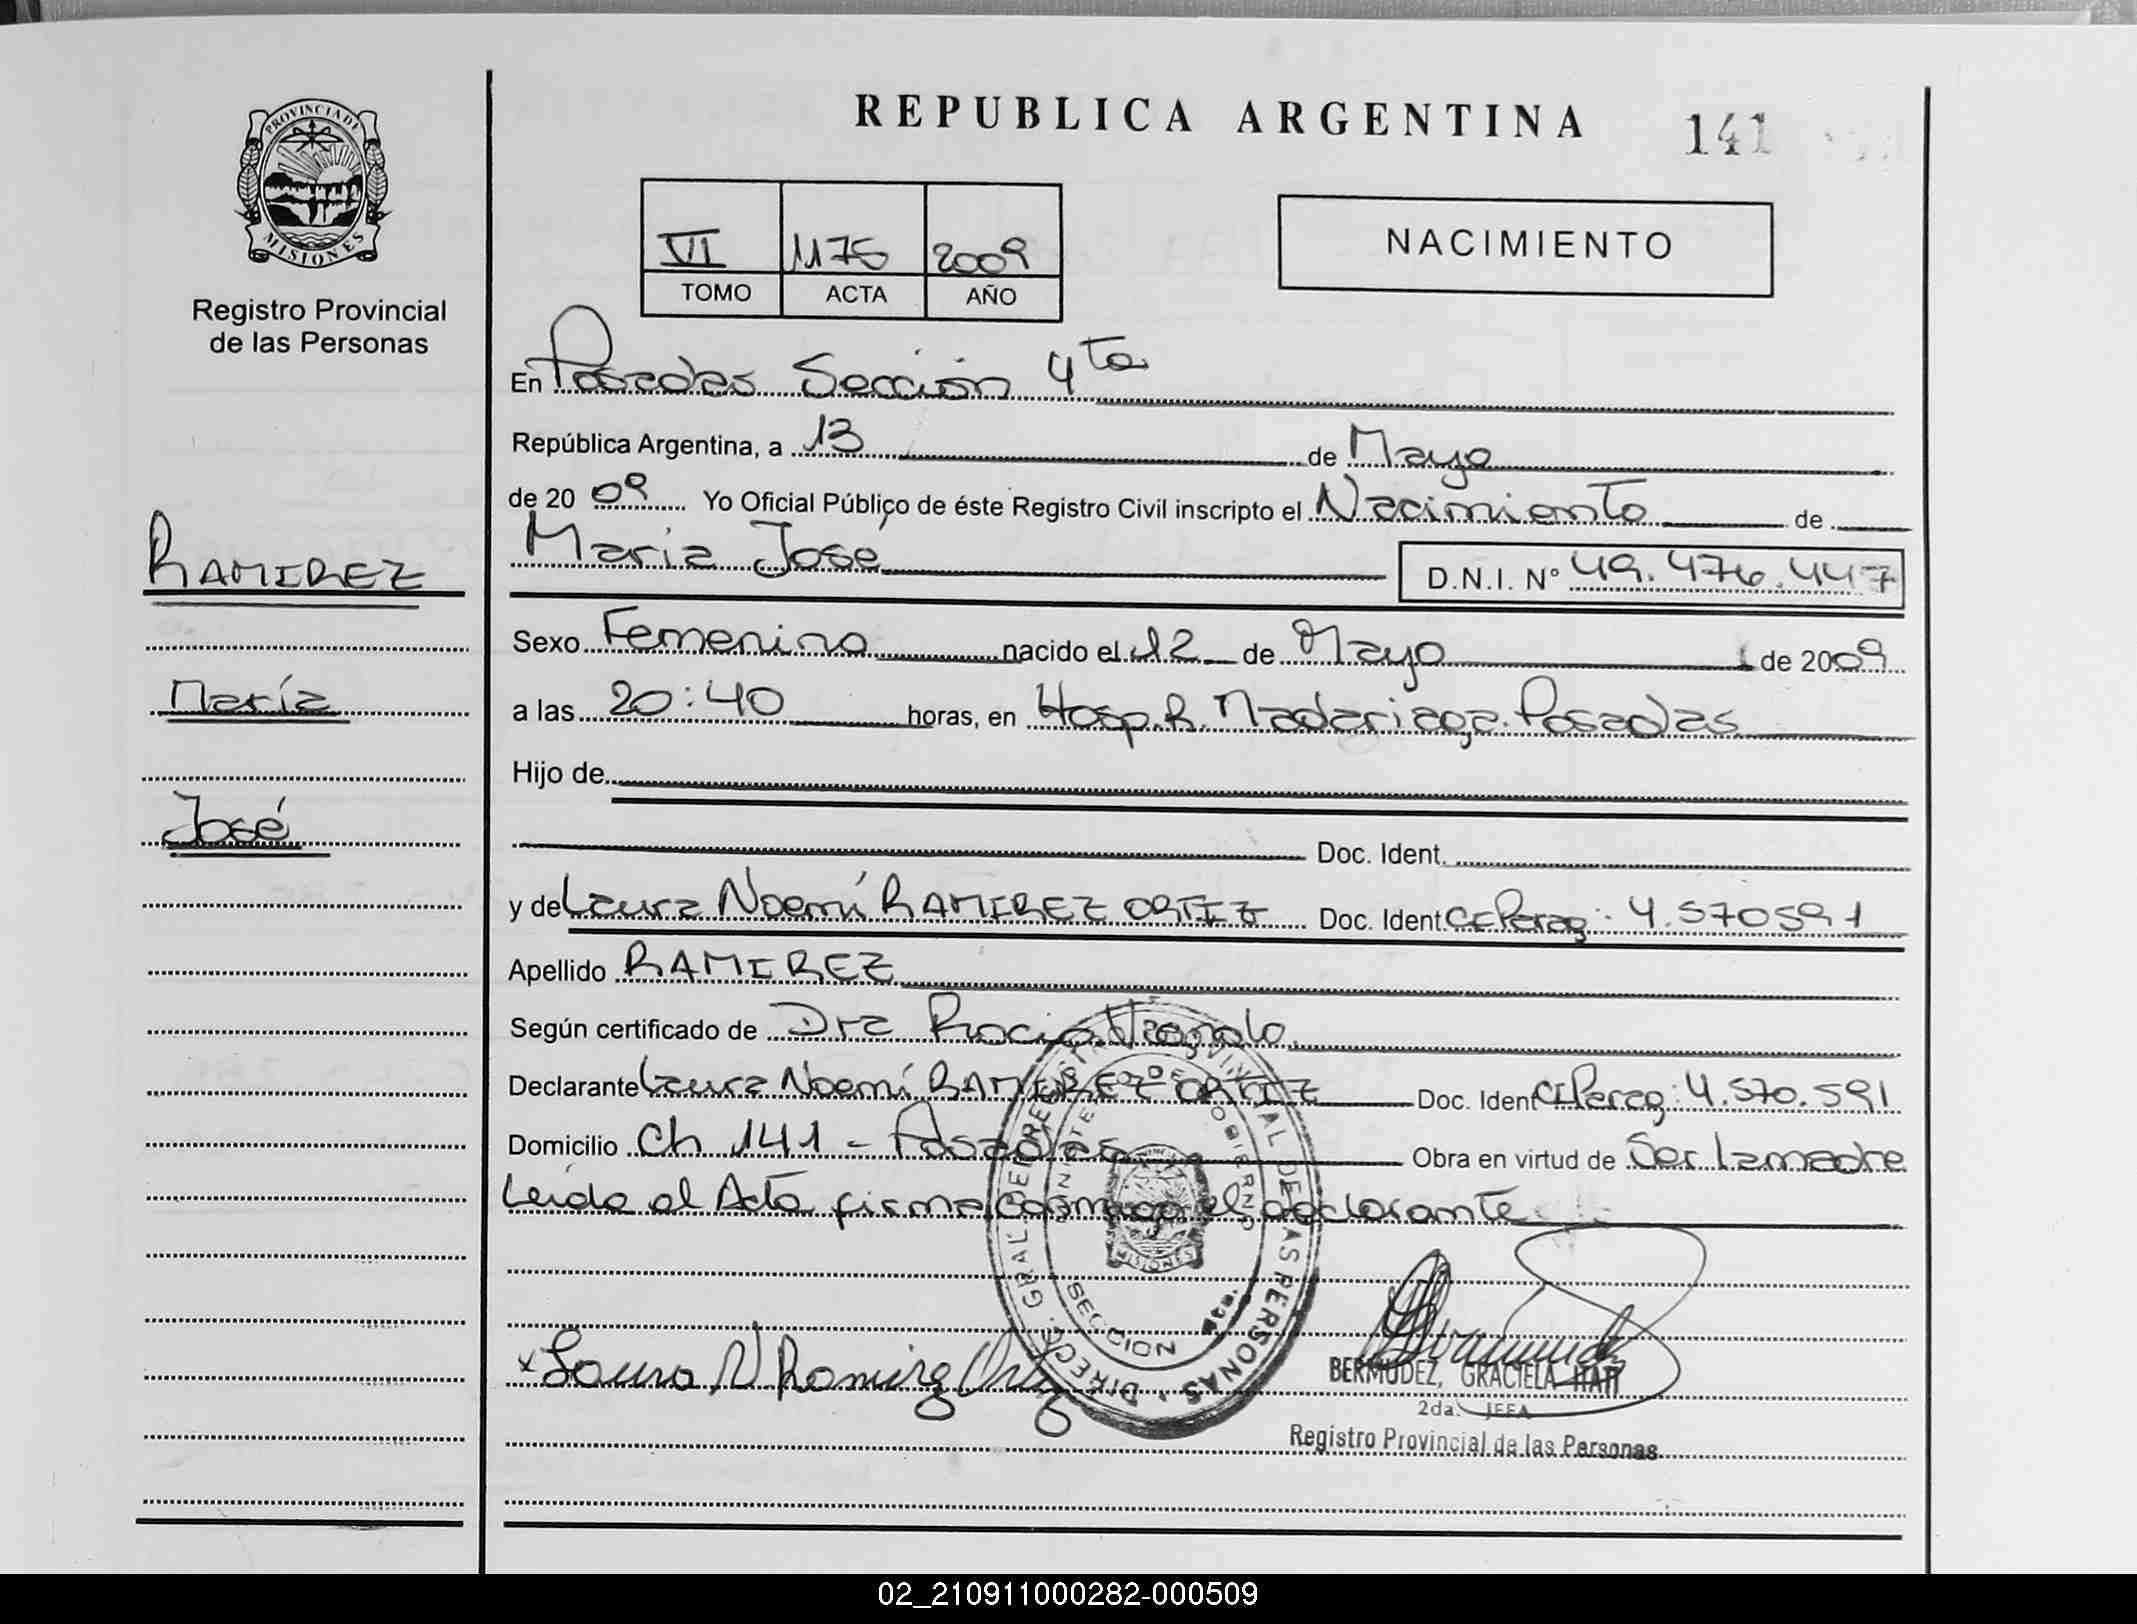 REPUBLICA ARGENTINA 141
PROVINCIA DE
MISIONES
Registro Provincial
de las Personas
VI 1175 2009
TOMO ACTA AÑO
NACIMIENTO
En Posadas Sección 4ta
República Argentina, a 13 de Mayo
de 20 09 Yo Oficial Público de éste Registro Civil inscripto el Nacimiento de
María José D.N.I. Nº 49.476.447
RAMIREZ
María
José
Sexo Femenino nacido el 12 de Mayo de 2009
a las 20:40 horas, en Hosp. R. Madariaga. Posadas
Hijo de
Doc. Ident.
y de Laura Noemí RAMIREZ ORTIZ Doc. Ident. CI Parag: 4.570591
Apellido RAMIREZ
Según certificado de Dra Rocio
Declarante Laura Noemí RAMIREZ ORTIZ Doc. Ident CI Parag: 4.570.591
Domicilio Ch 141 - Posadas Obra en virtud de Ser la madre
Leída el Acta firma conmigo el declarante
DIRECC. GRAL. DEL REGISTRO PROVINCIAL DE LAS PERSONAS
DE GOBIERNO
SECCION 4ta.
MISIONES
x Laura N Ramirez Ortiz
BERMUDEZ, GRACIELA ITATI
2da. JEFA
Registro Provincial de las Personas
02_210911000282-000509